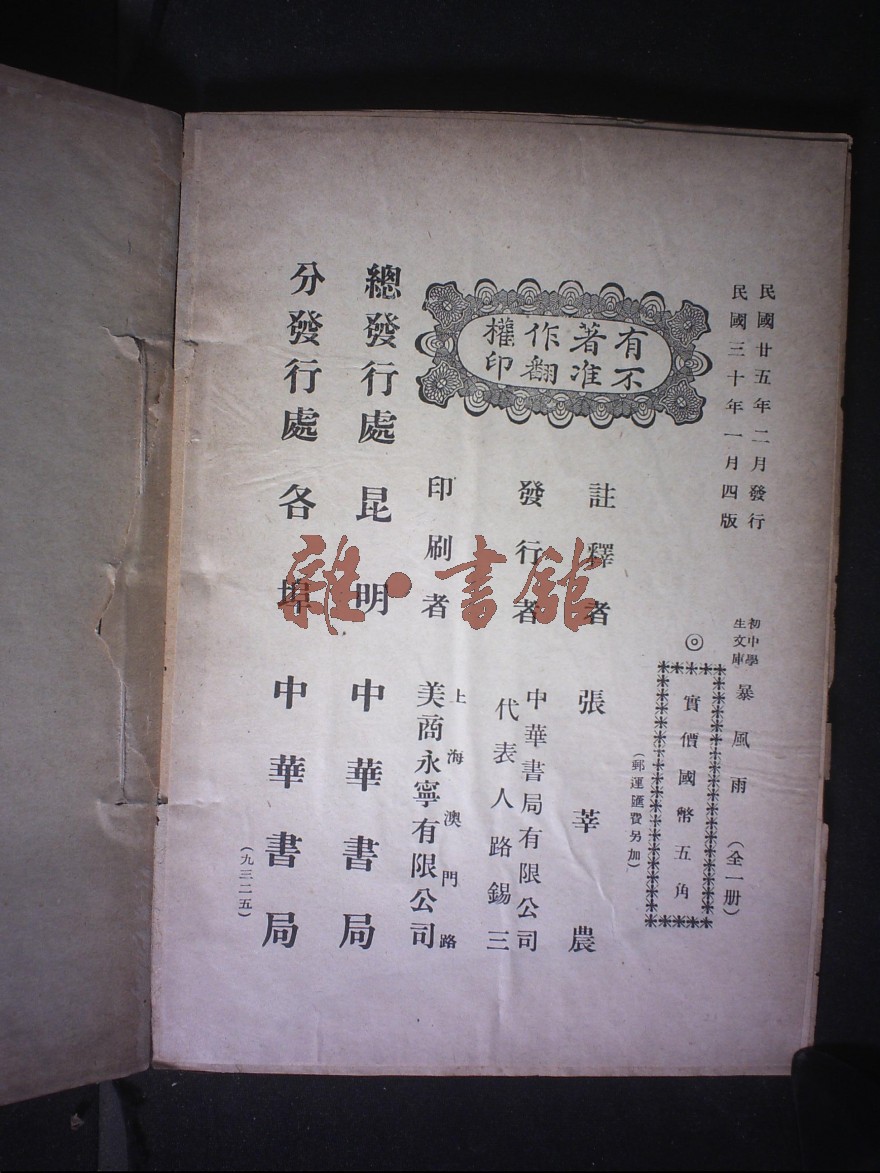 民國廿五年二月發行
民國三十年一月四版
初中學生文庫
暴風雨
(全一册)
◎
實價國幣五角
(郵運匯費另加)
有著作權
不准翻印
註釋者 張莘農
發行者 中華書局有限公司
代表人路錫三
印刷者 上海澳門路
美商永寧有限公司
總發行處 昆明 中華書局
分發行處 各埠 中華書局
(九三二五)
雜·書館